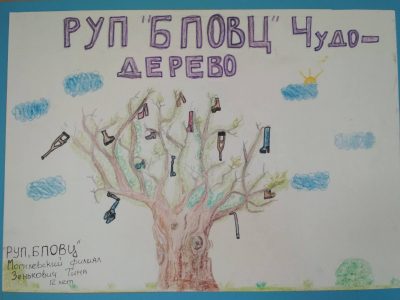 РУП "БПОВЦ" Чудо-
ДЕРЕВО
"РУП„БПОВЦ"
Могилевский филиал
Зенькович Тина
12 лет